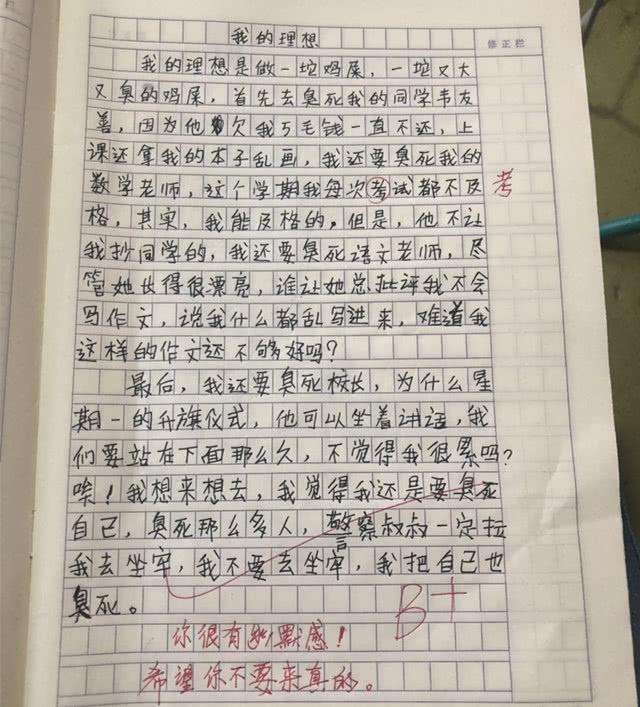 我的理想
修正栏
我的理想是做一垃鸡屎，一垃又大
又臭的鸡屎，首先去臭死我的同学韦友
善，因为他欠我5毛钱一直不还，上
课还拿我的本子乱画，我还要臭死我的
数学老师，这个学期我每次考试都不及
考
格，其实，我能及格的，但是，他不让
我抄同学的，我还要臭死语文老师，尽
管她长得很漂亮，谁让她总批评我不会
写作文，说我什么都乱写进来，难道我
这样的作文还不够好吗？
最后，我还要臭死校长，为什么星
期一的升旗仪式，他可以坐着讲话，我
们要站在下面那么久，不觉得我很累吗？
唉！我想来想去，我觉得我还是要臭死
自己，臭死那么多人，警察叔叔一定拉
我去坐牢，我不要去坐牢，我把自己也
臭死。
B+
你很有幽默感！
希望你不要来真的。